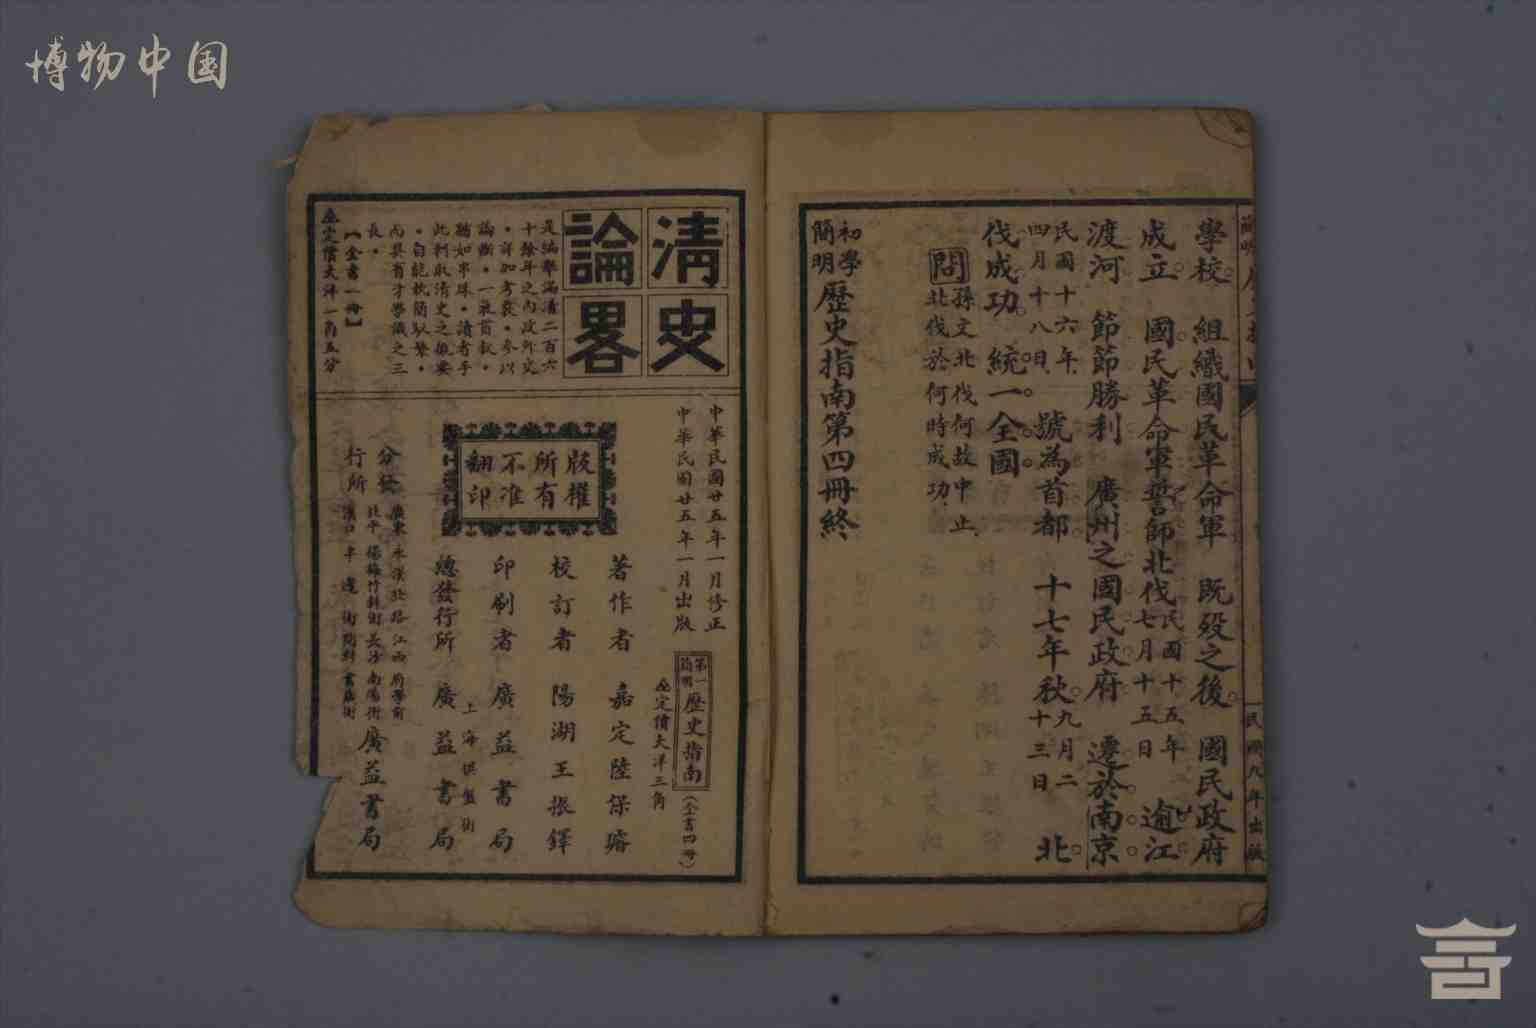 博物中国
學校。組織國民革命軍 既歿之後。國民政府
成立。國民革命軍誓師北伐民國十五年七月十五日 逾江
渡河 節節勝利 廣州之國民政府 遷於南京。
民國十六年四月十八日 號為首都 十七年秋。九月二十三日 北
伐成功。統一全國。
問 孫文北伐何故中止
北伐於何時成功
初學簡明歷史指南第四冊終
民國八年出版
清史論畧
是編舉滿清二百六
十餘年之內政外史
詳加考證參以
論斷一氣首敘
猶如串珠讀者手
此則取清史之
自能執簡馭繁
而具有才學識之三
長
【全書一冊】
定價大洋一角五分
中華民國廿五年一月修正
中華民國廿五年一月出版
第一簡明歷史指南(全書四冊)
定價大洋三角
版權所有不准翻印
著作者 嘉定陸保璿
校訂者 陽湖王振鐸
印刷者 廣益書局
總發行所 上海棋盤街 廣益書局
分發行所
廣東永漢北路 江西府學前
北平楊梅竹斜街 長沙南陽街
漢口半邊街 開封書店街
廣益書局